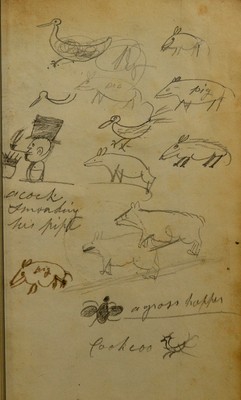 pig
a cock
Smoading
his pipe
pig
a grass hopper
Cookcoo